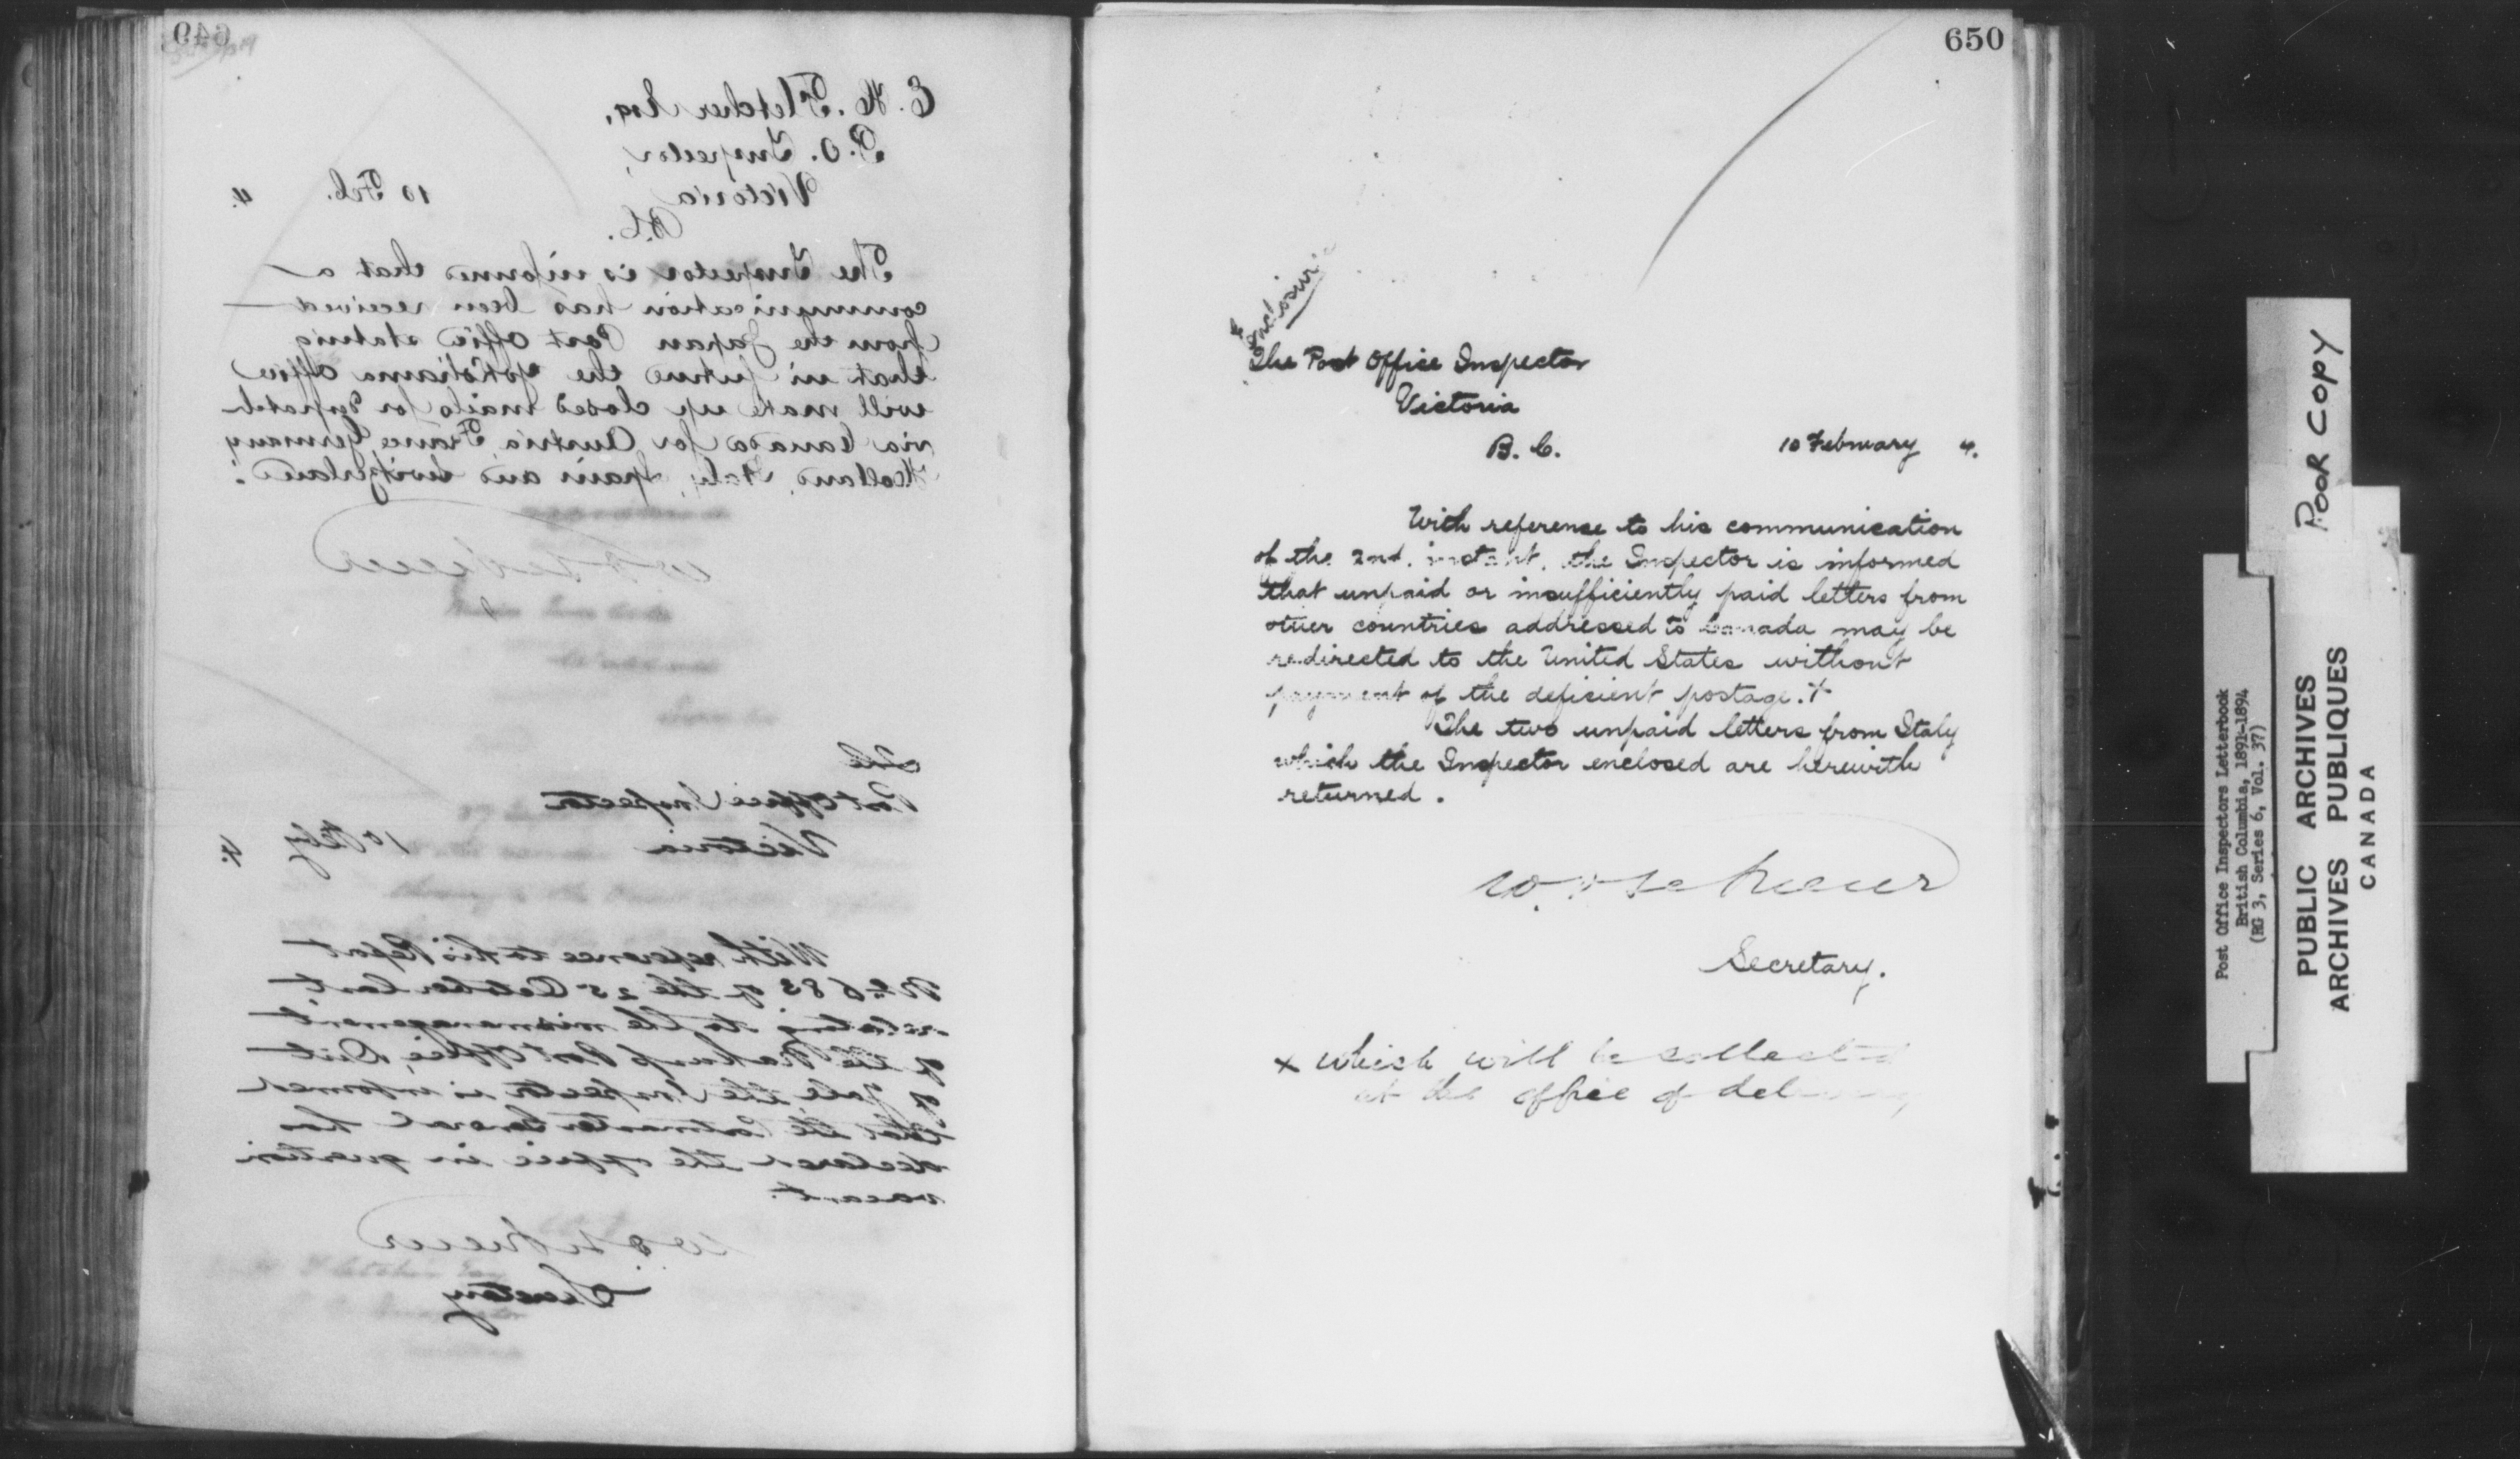 649
E. H. Fletcher Esq,
P.O. Inspector,
Victoria 10 Feb. 4.
B.C.
The Inspector is informed that a
communication has been received
from the Japan Post Office stating
that in future the Yokohama Office
will make up closed mails for despatch
via Canada for Austria, France, Germany
Holland, Italy, Spain and Switzerland.
The
Post Office Inspector
Victoria 10 Feby 4.
With reference to his Report
No. 683 of the 25 October last,
relating to the mismanagement
of the Post Office, Dist
of Yale, the Inspector is informed
that the Postmaster General has
declared the office in question
vacant.
Secretary
650
Enclosure
The Post Office Inspector
Victoria
B. C. 10 February 4.
With reference to his communication
of the 2nd. instant, the Inspector is informed
that unpaid or insufficiently paid letters from
other countries addressed to Canada may be
redirected to the United States without
payment of the deficient postage. +
The two unpaid letters from Italy
which the Inspector enclosed are herewith
returned.
Secretary.
x which will be collected
at the office of delivery
POOR COPY
Post Office Inspectors Letterbook
British Columbia, 1891-1894
(RG 3, Series 6, Vol. 37)
PUBLIC ARCHIVES
ARCHIVES PUBLIQUES
CANADA